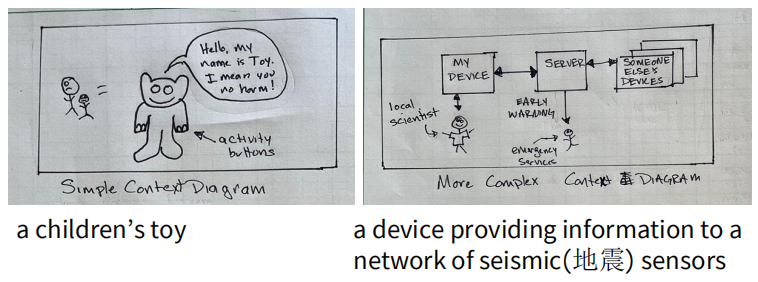 Hello, my
name is Toy.
I mean you
no harm!
=
activity
buttons
Simple Context Diagram
MY
DEVICE
SERVER
SOMEONE
ELSE'S
DEVICES
local
scientist
EARLY
WARNING
emergency
services
More Complex Context DIAGRAM
a children's toy
a device providing information to a
network of seismic(地震) sensors